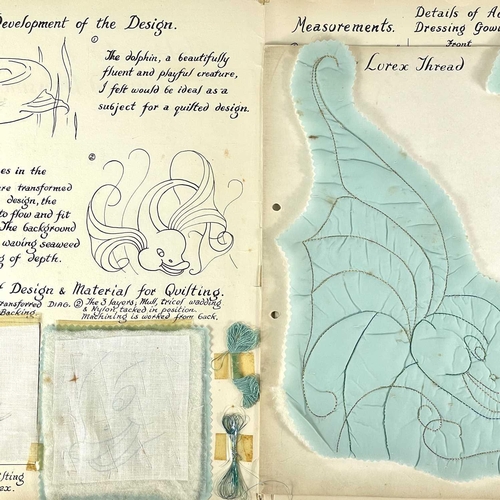 Development of the Design.
①
The dolphin, a beautifully
fluent and playful creature,
I felt would be ideal as a
subject for a quilted design.
②
es in the
re transformed
design, the
to flow and fit
The background
waving seaweed
g of depth.
f Design & Material for Quilting.
transferred DIAG. ② The 3 layers, Mull, tricel wadding
Backing. & Nylon, tacked in position.
Machining is worked from back.
lting
ex.
Measurements.
Details of
Dressing Gow
Front
Lurex Thread